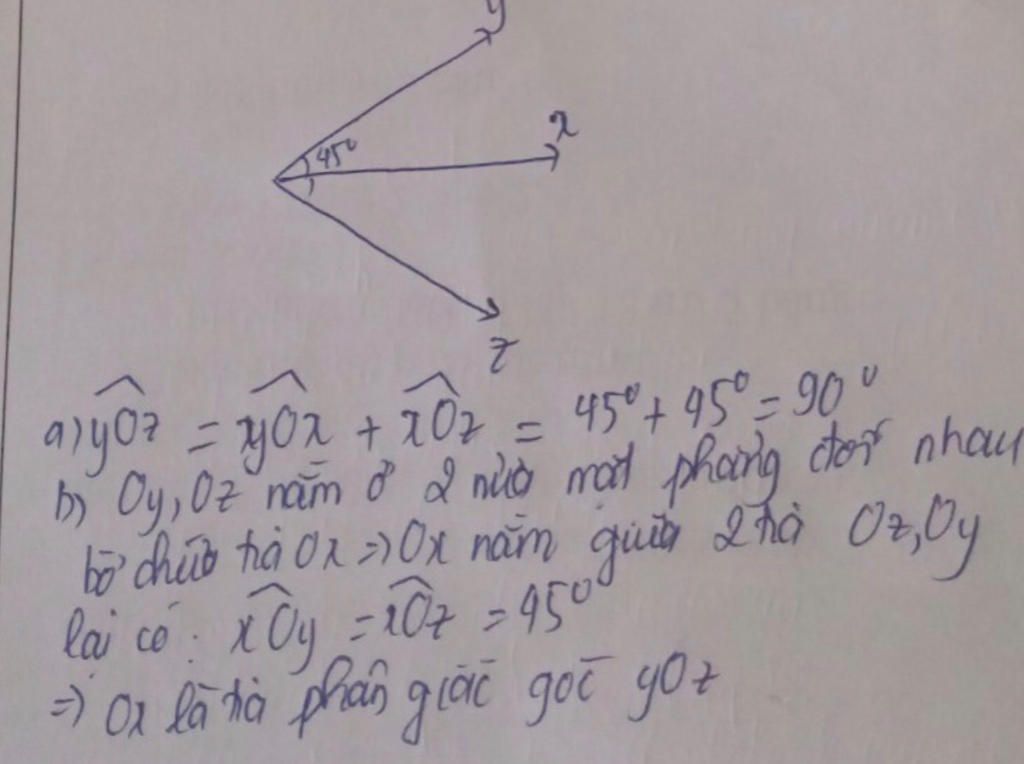 y
x
45°
z
a) yÔz = yÔx + xÔz = 45° + 45° = 90°
b) Oy, Oz nằm ở 2 nửa mặt phẳng đối nhau
bờ chứa tia Ox => Ox nằm giữa 2 tia Oz, Oy
lại có: xÔy = xÔz = 45°
=> Ox là tia phân giác góc yOz